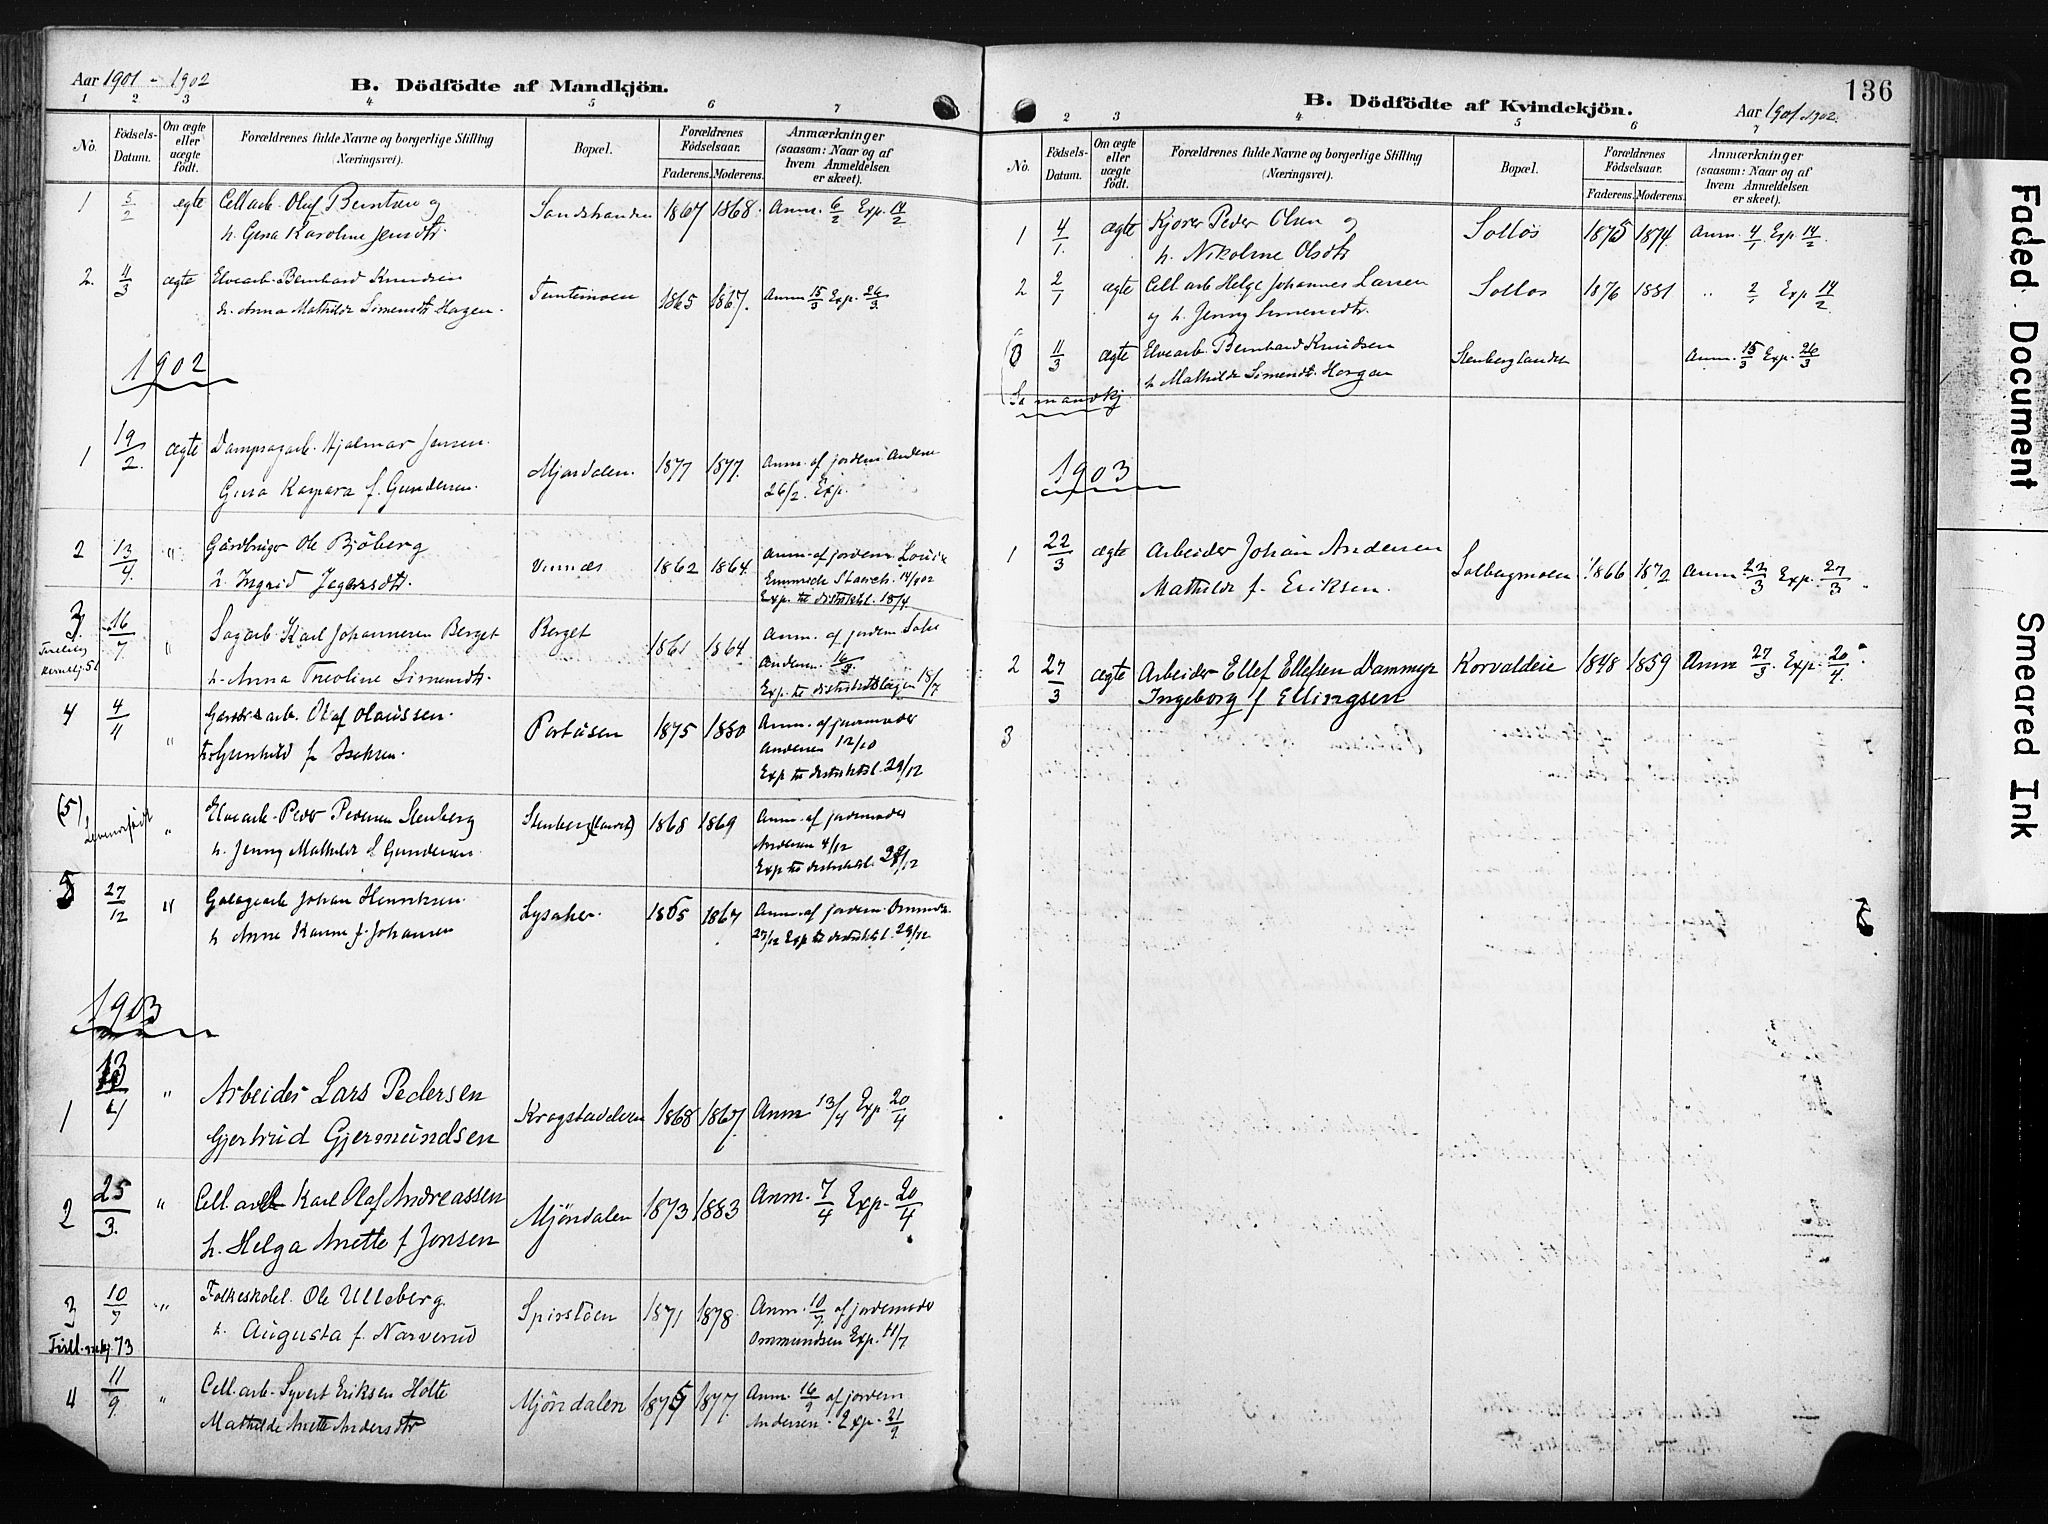 Aar 1901 - 1902
B. Dödfödte af Mandkjön.
1 2 3 4 5 6 7
No.
Födsels-
Datum.
Om ægte
eller
uægte
födt.
Forældrenes fulde Navne og borgerlige Stilling
(Næringsvei).
Bopæl.
Forældrenes
Födselsaar.
Faderens. Moderens.
Anmærkninger
(saasom: Naar og af
hvem Anmeldelsen
er skeet).
1 5/2 ægte Cellarb. Olaf Berntsen og Sandstranden 1867 1868. Anm. 6/2 Exp. 14/2
h. Gina Karoline Jensdtr.
2. 11/3 ægte Elvearb. Bernhard Knudsen 1865 1867. Anm 15/3 Exp. 26/3.
h. Anna Mathilde Simensdtr Hagen.
1902
1 19/2. ægte Dampsagarb. Hjalmar Jensen. Mjøndalen. 1877 1877. Anm. af jordem. Andersen
Gusta Kaspara f. Gundersen. 26/2. Exp.
2 13/4 " Gårdbruger Ole Bjöberg Vinnæs 1862 1864. Anm. af jordem. Louise
h. Ingrid 14/4 02
Exp. til distriktsl. 15/4
3. 16/7. " Sagarb. Karl Johannesen Berget Berget 1861 1864 Anm. af jordem Sofie
Andersen 16/7
h. Anna Simensdtr. Exp. til distriktslægen 18/7
4 4/11 " Olaf Olaussen. Portåsen 1875 1880 Anm. af jordemoder
h. Gunhild f. Isaksen. Andersen 12/10
Exp til distriktsl. 29/12
(5) Levendefødt " Elvearb. Peder Pedersen Stenberg Stenberg 1868 1869 Anm. af jordemoder
h. Jenny Mathilde f. Gundersen. Andersen 4/12
Exp til distriktsl. 29/12
5 27/12 " Johan Henriksen. Lysaker. 1865 1867 Anm. af jordem.
h Anne Karine f. Johansen 27/12 Exp til distriktsl. 29/12
1903
1 13/4 " Arbeider Lars Pedersen Krogstadderen 1868 1867. Anm 13/4 Exp 20/4
Gjertrud Gjermundsen
2 25/3. " Cell.arb Karl Olaf Andreassen Mjöndalen 1873 1883 Anm. 7/4 Exp. 20/4.
h. Helga Anette f Jonsen
3 10/7 " Folkeskolel. Ole Ulleberg. Spirstöen 1871 1878. Anm. 10/7. af jordemoder
Tvill. mkj. 73 h. Augusta f. Narverud Ommundsen Exp. 11/7
4 11/9. " Cell.arb. Syvert Eriksen Holte Mjöndalen 1875 1877. Anm. 16/9 af jordem
Mathilde Anette Andersdtr Andersen. Exp. 21/9.
136
B. Dödfödte af Kvindekjön.
Aar 1901 - 1902.
2 3 4 5 6 7
No.
Födsels-
Datum.
Om ægte
eller
uægte
födt.
Forældrenes fulde Navne og borgerlige Stilling
(Næringsvei).
Bopæl.
Forældrenes
Födselsaar.
Faderens. Moderens.
Anmærkninger
(saasom: Naar og af
hvem Anmeldelsen
er skeet).
1 4/1. ægte Kjører Peder Olsen og Solløs 1875 1874. Anm. 4/1. Exp 14/2.
h. Nikoline Olsdtr
2 2/1 ægte Cell arb Helge Johannes Larsen Solløs 1876 1881 " 2/1 Exp 14/2
og h. Jenny Simensdtr.
11/3 ægte Elvearb. Bernhard Knudsen Stenberglandet Anm. 15/3 Exp. 26/3
h Mathilde Simensdt.
Se mandkj.
1903
1 22/3 ægte Arbeider Johan Andersen Solbergmoen 1866 1872 Anm 22/3 Exp. 27/3.
Mathilde f. Eriksen.
2 27/3 ægte Arbeider Ellef Ellefsen Dammyr Korvaldeie 1848 1859 Anm 27/3. Exp. 20/4.
Ingeborg f Ellingsen
3
Faded Document
Smeared Ink